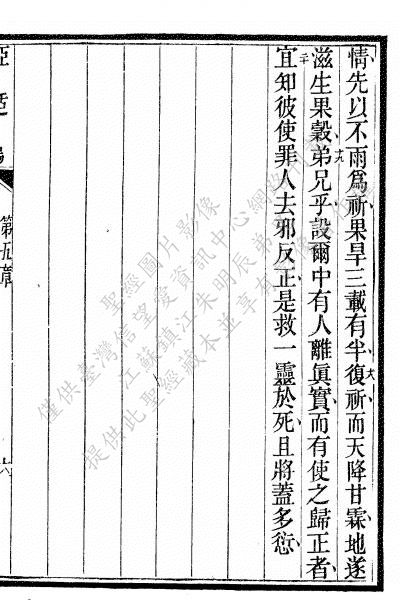 情先以不雨爲祈果旱三載有半復祈而天降甘霖地遂
十八
滋生果穀弟兄乎設爾中有人離眞實而有使之歸正者
十九
二十
宜知彼使罪人去邪反正是救一靈於死且將蓋多愆
第五章
六
聖經圖片影像
僅供臺灣信望愛資訊中心網路
江蘇鎮江朱明辰弟
提供此聖經藏本並享有